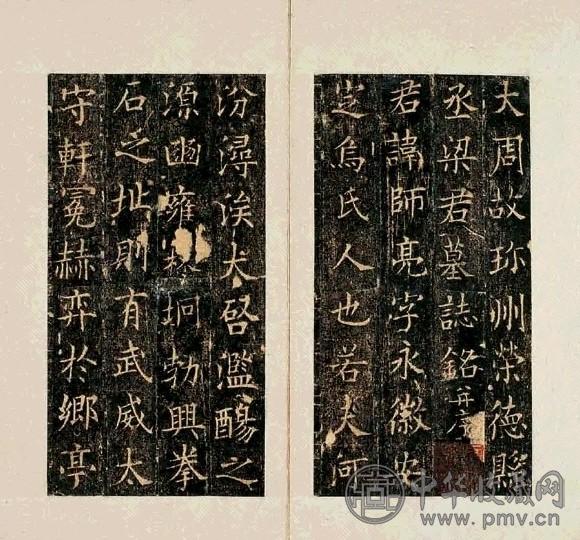 大周故珎州荣德縣
丞梁君墓誌銘并序
君諱師亮字永徽安
定烏氏人也若夫河
汾潯涘大啓濫觴之
源豳雍坰勃興拳
石之址則有武威太
守軒冕赫弈於鄉亭
中华收藏网
www.pmv.cn